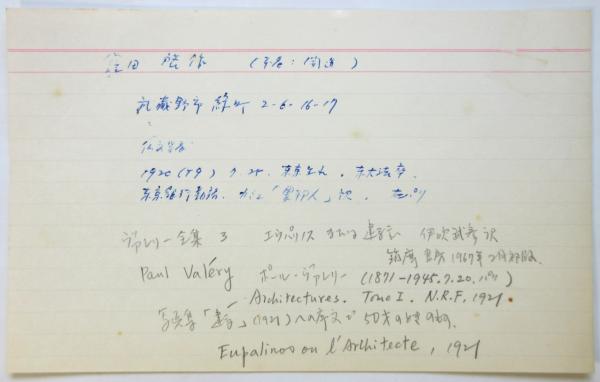 窪田 啓作 (字名:開造)
武蔵野市 緑町 2-6-16-17
仏文学者
1920 (T9) 7.25. 東京生れ. 東大法卒.
東京銀行勤務. カミュ「異邦人」訳. 在パリ
ヴァレリー全集 3 エウパリノス あるいは建築家 伊吹武彦訳
筑摩書房 1967年2月初版.
Paul Valéry ポール・ヴァレリー (1871-1945.7.20. パリ)
Architectures. Tome I. N.R.F, 1921.
写真集「建築」(1921) への序文で 50才のときのもの.
Eupalinos ou l'Architecte, 1921